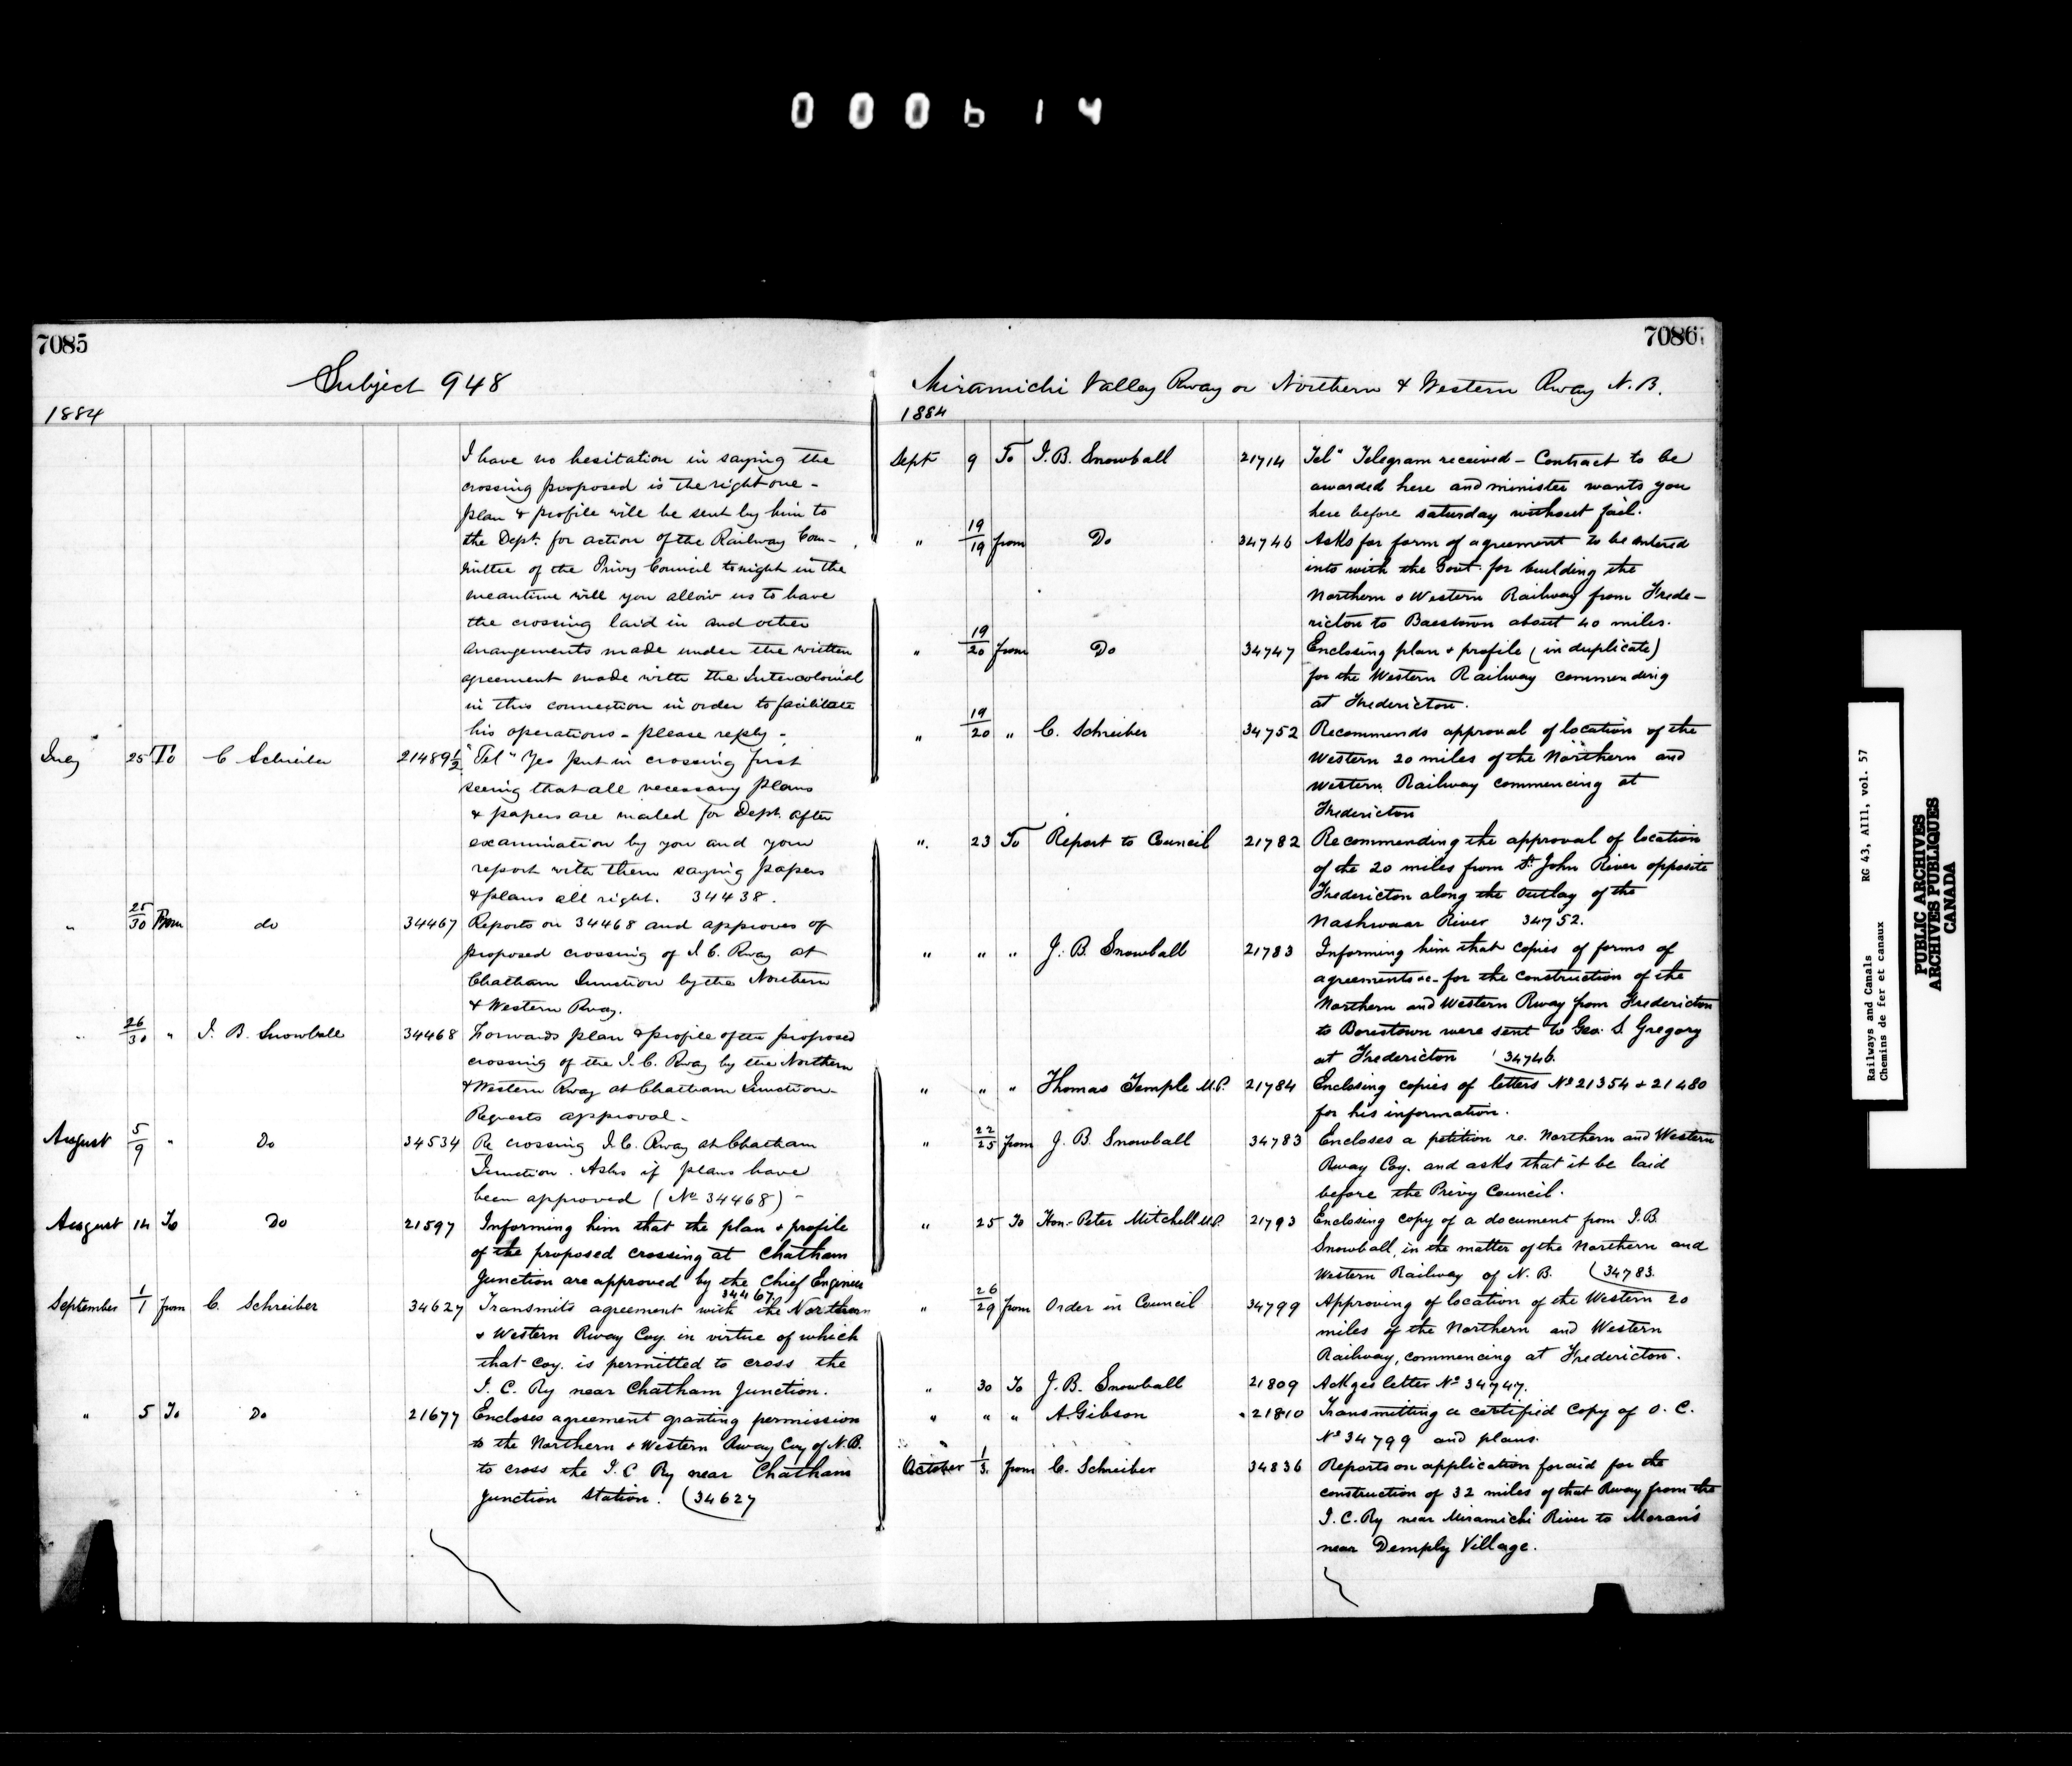 000614
7085
Subject 948
1884
I have no hesitation in saying the
crossing proposed is the right one -
plan & profile will be sent by him to
the Dept. for action of the Railway Com-
mittee of the Privy Council tonight in the
meantime will you allow us to have
the crossing laid in and other
arrangements made under the written
agreement made with the Intercolonial
in this connection in order to facilitate
his operations - please reply -
July 25 To C Schreiber 21489½ "Tel" Yes put in crossing first
seeing that all necessary plans
& papers are mailed for Dept. after
examination by you and your
report with them saying papers
& plans all right. 34438.
" 25/30 From do 34467 Reports on 34468 and approves of
proposed crossing of I C. Rway at
Chatham Junction by the Northern
& Western Rway.
" 26/30 " J. B. Snowball 34468 Forwards plan & profile of the proposed
crossing of the I.C. Rway by the Northern
& Western Rway at Chatham Junction-
Requests approval -
August 5/9 " Do 34534 Re crossing I.C. Rway at Chatham
Junction. Asks if plans have
been approved (No 34468) -
August 14 To Do 21597 Informing him that the plan & profile
of the proposed crossing at Chatham
Junction are approved by the Chief Engineer
34467
September 1/1 from C. Schreiber 34627 Transmits agreement with the Northern
& Western Rway Coy. in virtue of which
that Coy. is permitted to cross the
I. C. Ry near Chatham Junction.
" 5 To Do 21677 Encloses agreement granting permission
to the Northern & Western Rway Coy of N.B.
to cross the I.C Ry near Chatham
Junction Station. (34627
7086
Miramichi Valley Rway or Northern & Western Rway N.B.
1884
Sept 9 To J.B. Snowball 21714 Tel" Telegram received - Contract to be
awarded here and minister wants you
here before saturday without fail.
" 19/19 from Do 34746 Asks for form of agreement to be entered
into with the Govt. for building the
Northern & Western Railway from Frede-
ricton to Boestown about 40 miles.
" 19/20 from Do 34747 Enclosing plan & profile (in duplicate)
for the Western Railway commencing
at Fredericton.
" 19/20 " C. Schreiber 34752 Recommends approval of location of the
Western 20 miles of the Northern and
Western Railway commencing at
Fredericton
" 23 To Report to Council 21782 Recommending the approval of location
of the 20 miles from St. John River opposite
Fredericton along the Outlay of the
Nashwaar River 34752.
" " " J. B. Snowball 21783 Informing him that copies of forms of
agreements &c - for the construction of the
Northern and Western Rway from Fredericton
to Boestown were sent to Geo. S. Gregory
at Fredericton (34746.
" " " Thomas Temple M.P. 21784 Enclosing copies of letters Nº 21354 & 21480
for his information.
" 22/25 from J. B. Snowball 34783 Encloses a petition re. Northern and Western
Rway Coy. and asks that it be laid
before the Privy Council.
" 25 To Hon. Peter Mitchell M.P. 21793 Enclosing copy of a document from J.B.
Snowball, in the matter of the Northern and
Western Railway of N.B. (34783.
" 26/29 from Order in Council 34799 Approving of location of the Western 20
miles of the Northern and Western
Railway, commencing at Fredericton.
" 30 To J. B. Snowball 21809 Ackges letter Nº 34747.
" " " A. Gibson 21810 Transmitting a certified Copy of O. C.
Nº 34799 and plans.
October 1/3. from C. Schreiber 34836 Reports on application for aid for the
construction of 32 miles of that Rway from the
I.C. Ry near Miramichi River to Moran's
near Demply Village.
RG 43, AIII, vol. 57
Railways and Canals
Chemins de fer et canaux
PUBLIC ARCHIVES
ARCHIVES PUBLIQUES
CANADA